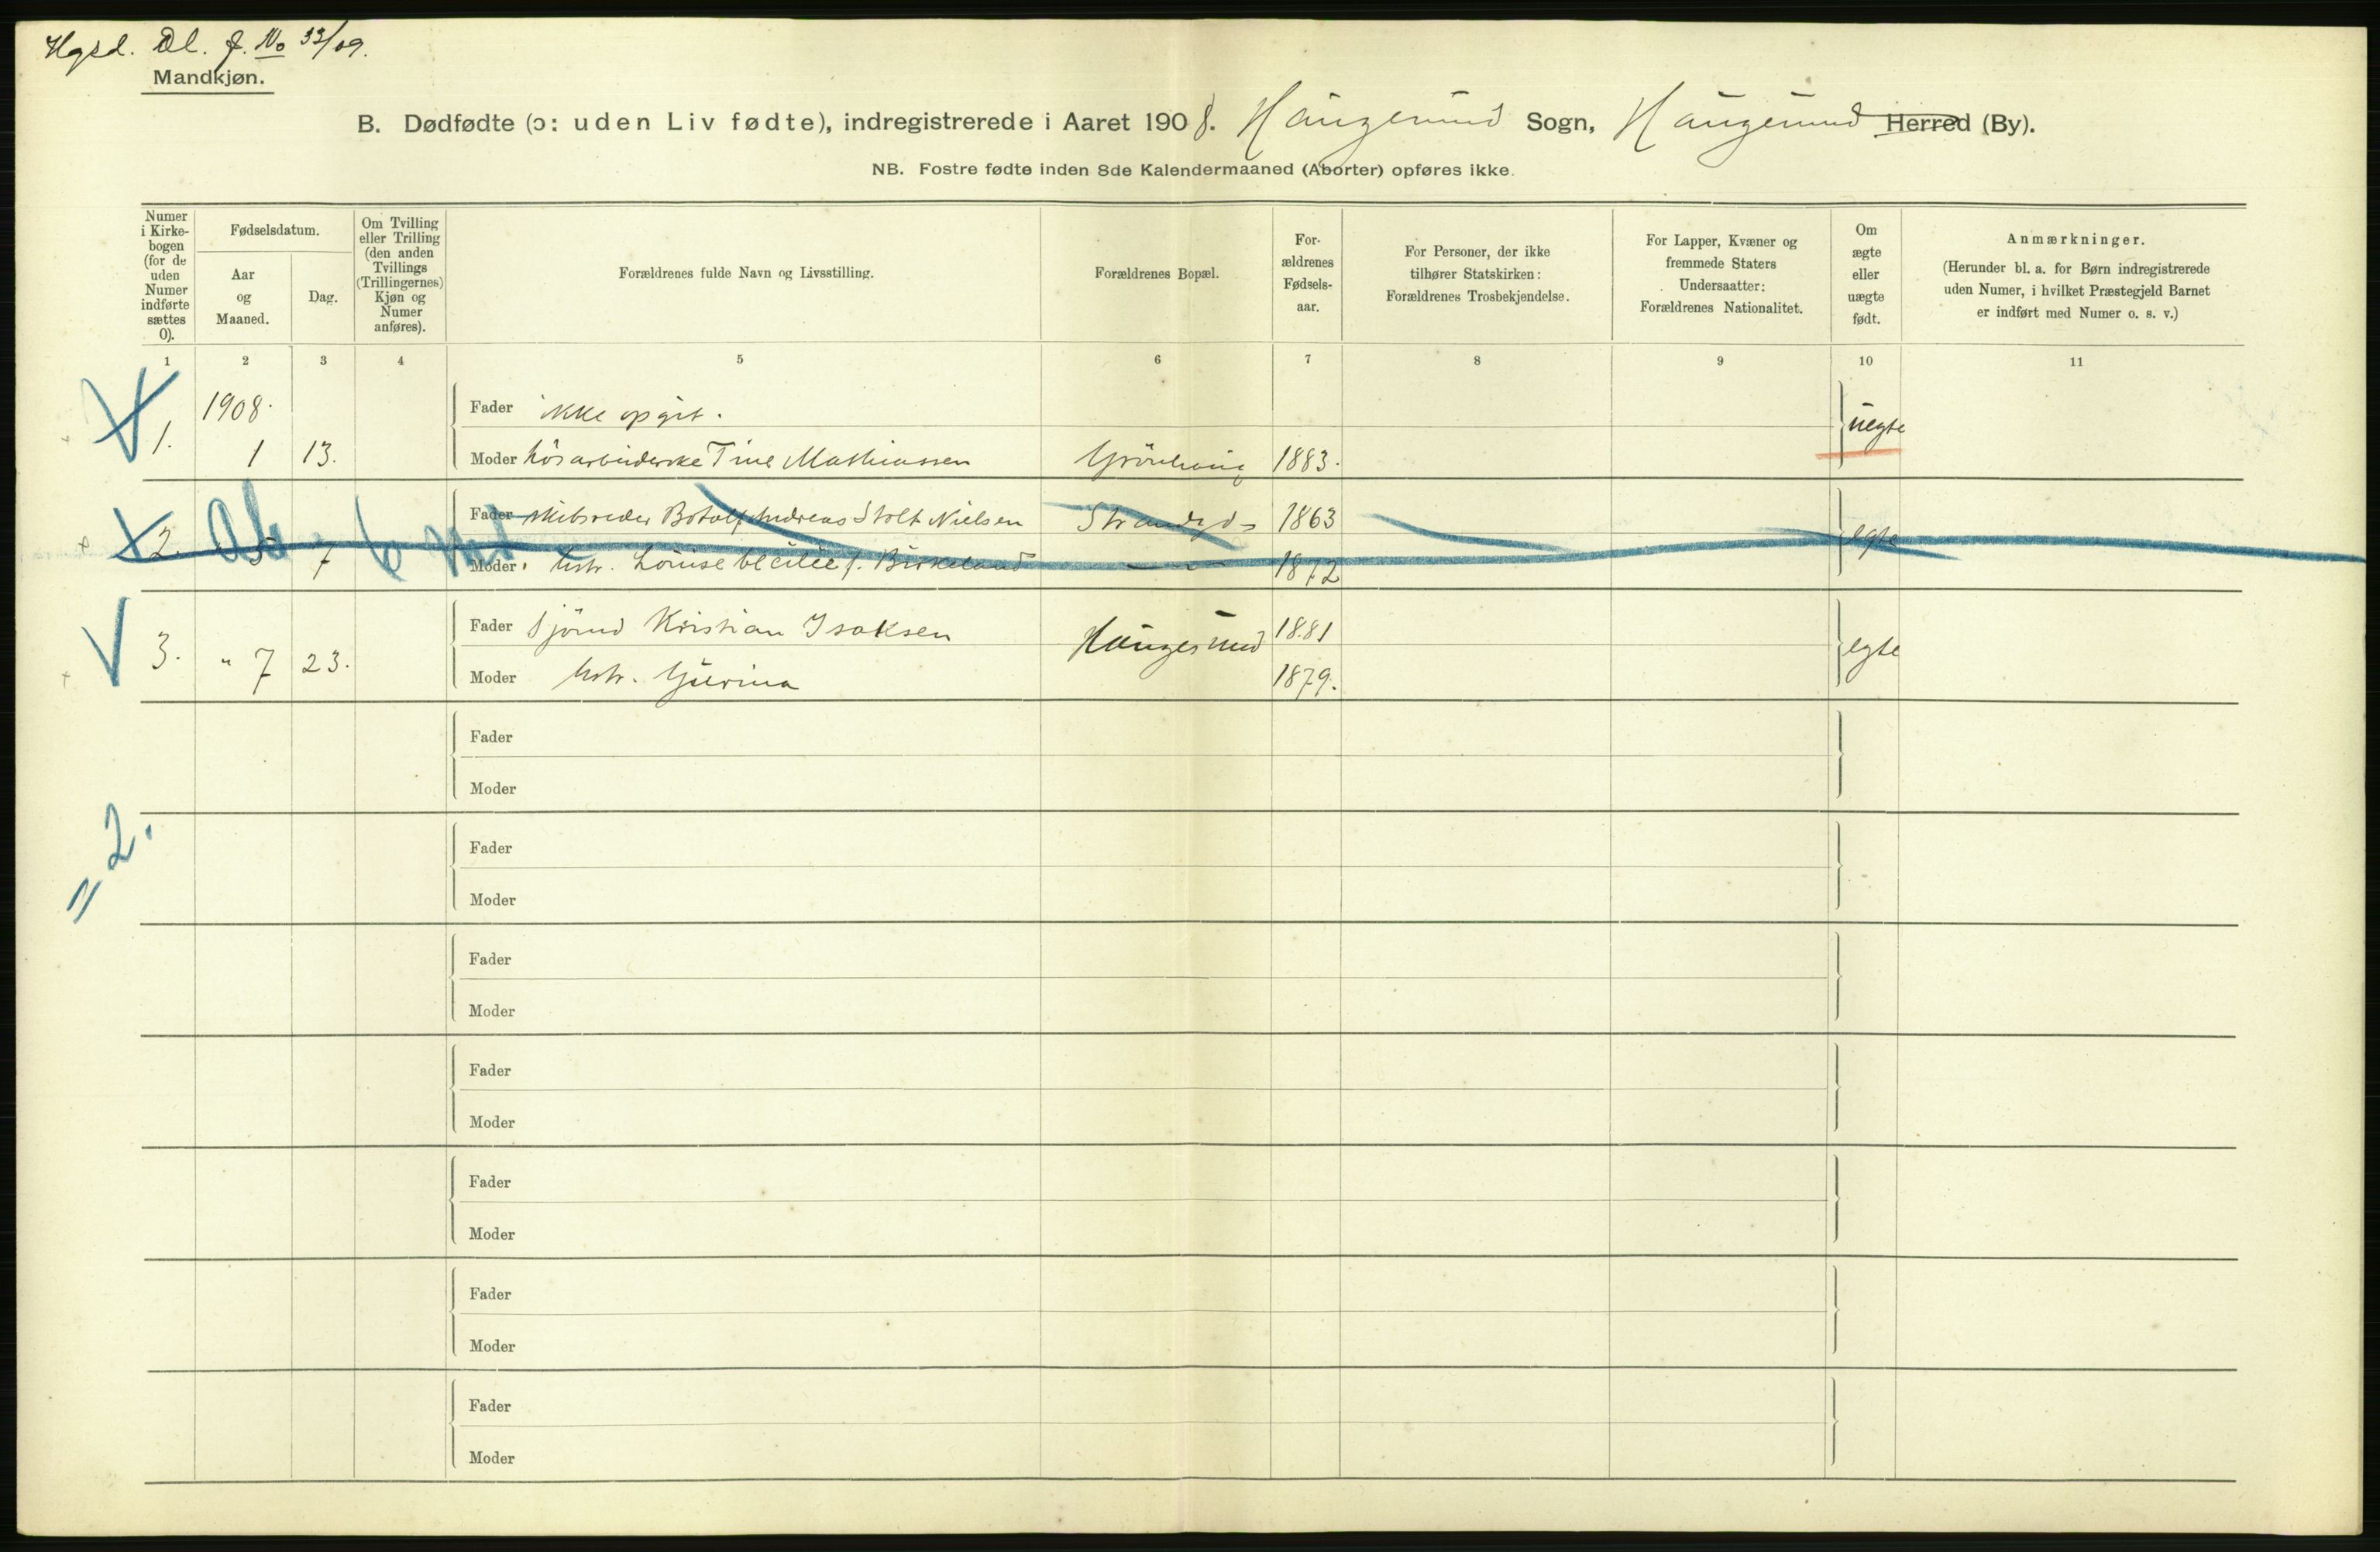 Hgsd. Dl. J. No 33/09.
Mandkjøn.
B. Dødfødte (ɔ: uden Liv fødte), indregistrerede i Aaret 1908. Haugesund Sogn, Haugesund Herred (By).
NB. Fostre fødte inden 8de Kalendermaaned (Aborter) opføres ikke.
Numer i Kirke-bogen (for de uden Numer indførte sættes 0).
Fødselsdatum.
Aar og Maaned.
Dag.
Om Tvilling eller Trilling (den anden Tvillings (Trillingernes) Kjøn og Numer anføres).
Forældrenes fulde Navn og Livsstilling.
Forældrenes Bopæl.
For-ældrenes Fødsels-aar.
For Personer, der ikke tilhører Statskirken: Forældrenes Trosbekjendelse.
For Lapper, Kvæner og fremmede Staters Undersaatter: Forældrenes Nationalitet.
Om ægte eller uægte født.
Anmærkninger.
(Herunder bl. a. for Børn indregistrerede uden Numer, i hvilket Præstegjeld Barnet er indført med Numer o. s. v.)
1 2 3 4 5 6 7 8 9 10 11
1908.
Fader ikke opgit.
uegte
1. 1 13. Moder Tine Mathiassen Grönhaug 1883.
Fader skibsreder Botolf Andreas Stolt Nielsen Strandgd 1863
2. 5 7 Ab. 6 md egte
Moder hstr. Louise Cecilie f. Birkeland 1872
Fader Sjömd Kristian Isaksen Haugesund 1881
3. " 7 23. egte
Moder hstr. Gurina 1879.
Fader
Moder
= 2.
Fader
Moder
Fader
Moder
Fader
Moder
Fader
Moder
Fader
Moder
Fader
Moder